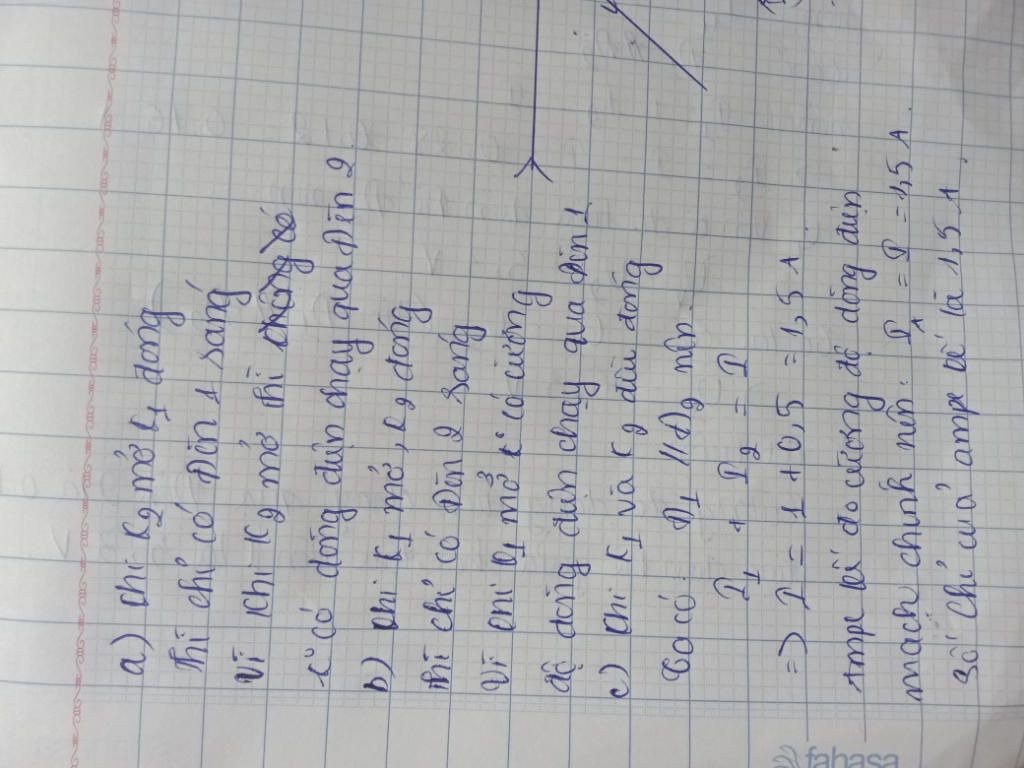 a) Khi K2 mở K1 đóng
thì chỉ có Đèn 1 sáng
Vì khi K2 mở thì không có
k° có dòng điện chạy qua Đèn 2.
b) Khi K1 mở, K2 đóng
thì chỉ có Đèn 2 sáng
Vì khi K1 mở k° có cường
độ dòng điện chạy qua Đèn 1
c) Khi K1 và K2 đều đóng
Ta có: Đ1 // Đ2 nên.
I1 + I2 = I
=> I = 1 + 0,5 = 1,5 A
Ampe kế đo cường độ dòng điện
mạch chính nên: IA = I = 1,5 A
Số chỉ của ampe kế là 1,5 A.
fahasa